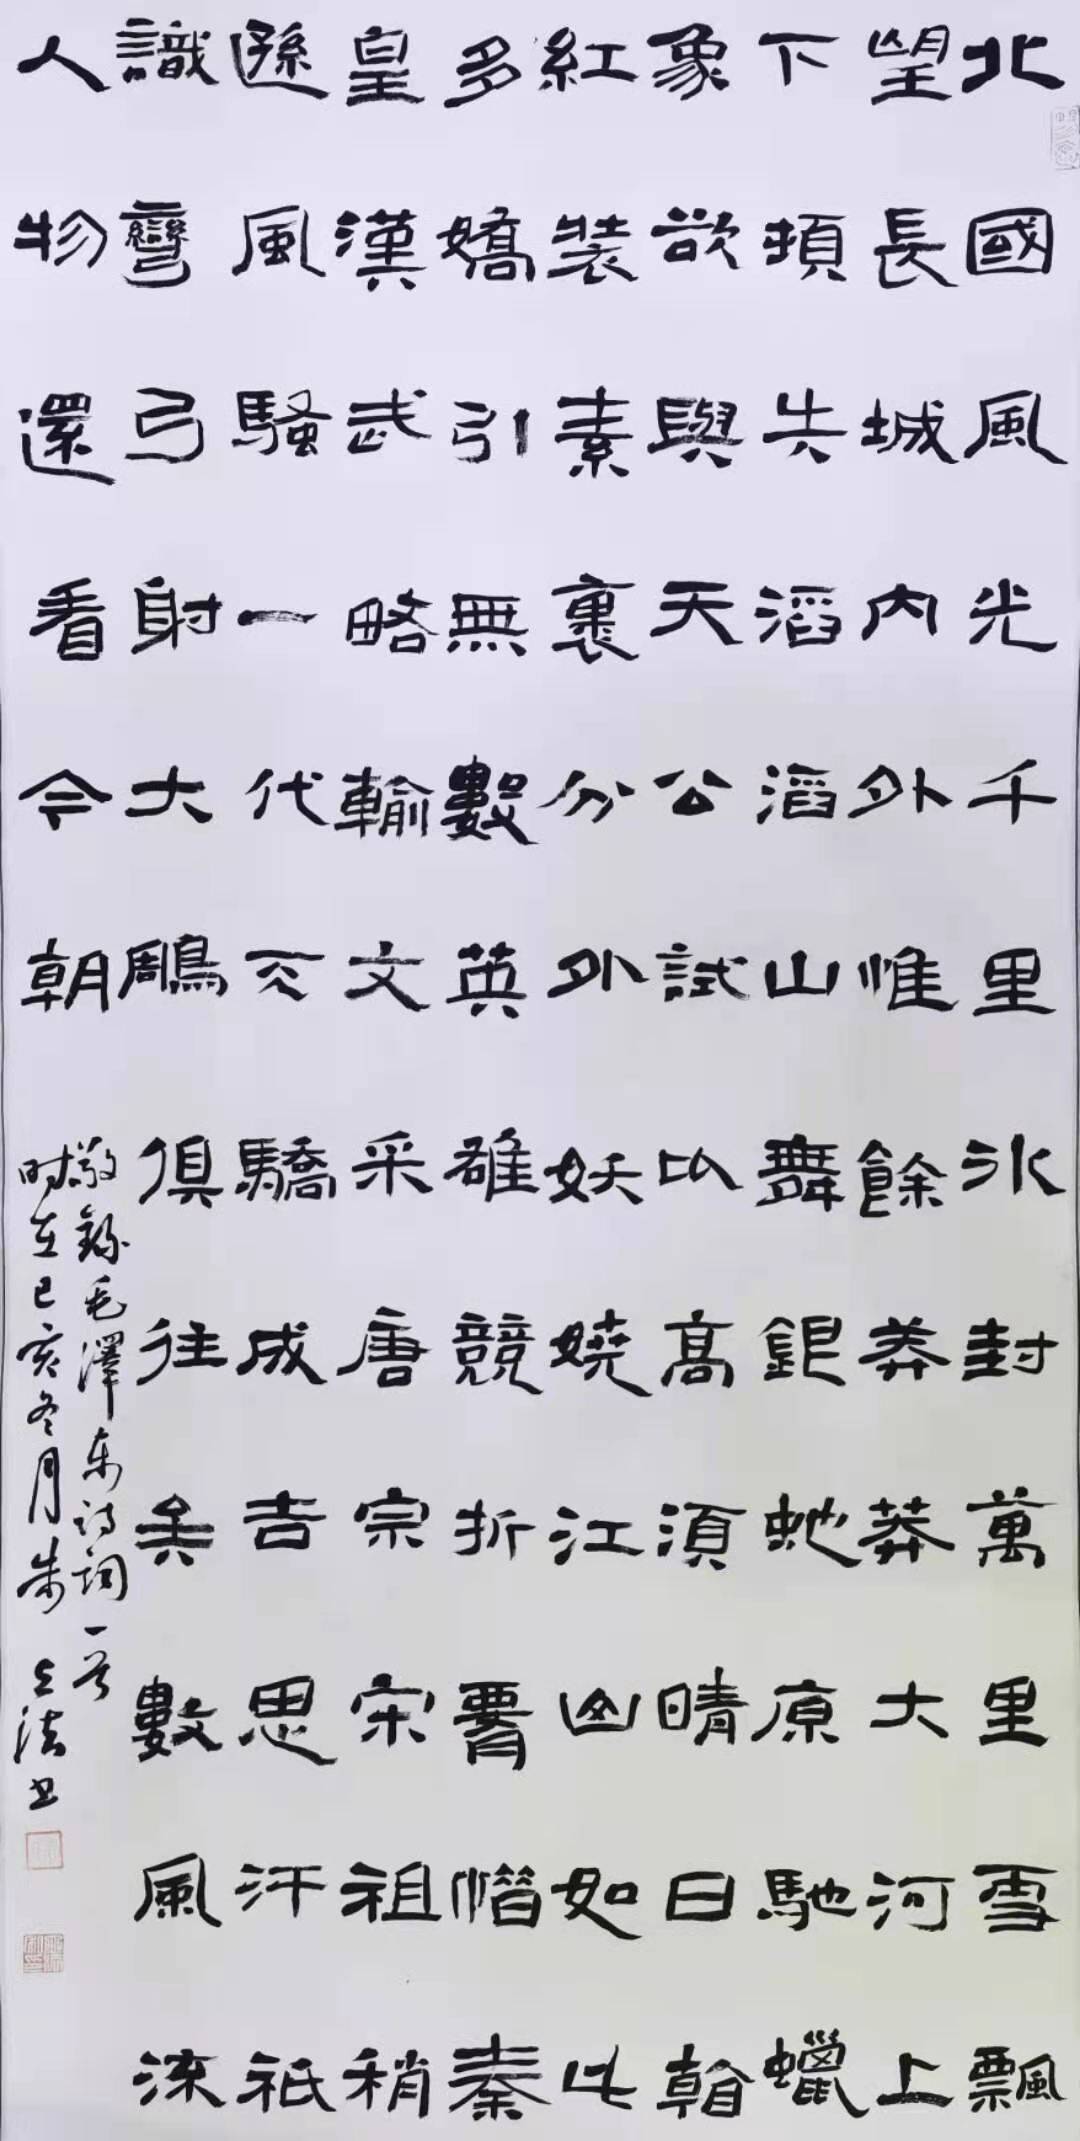 北國風光千里冰封萬里雪飄
望長城内外惟餘莽莽大河上
下頓失滔滔山舞銀蛇原馳蠟
象欲與天公試以高須晴日看
紅裝素裹分外妖嬈江山如此
多嬌引無數英雄競折腰惜秦
皇漢武略輸文采唐宗宋祖稍
遜風騷一代天驕成吉思汗祇
識彎弓射大鵰俱往矣數風流
人物還看今朝
敬錄毛澤东诗词一首
时在己亥冬月朱法书